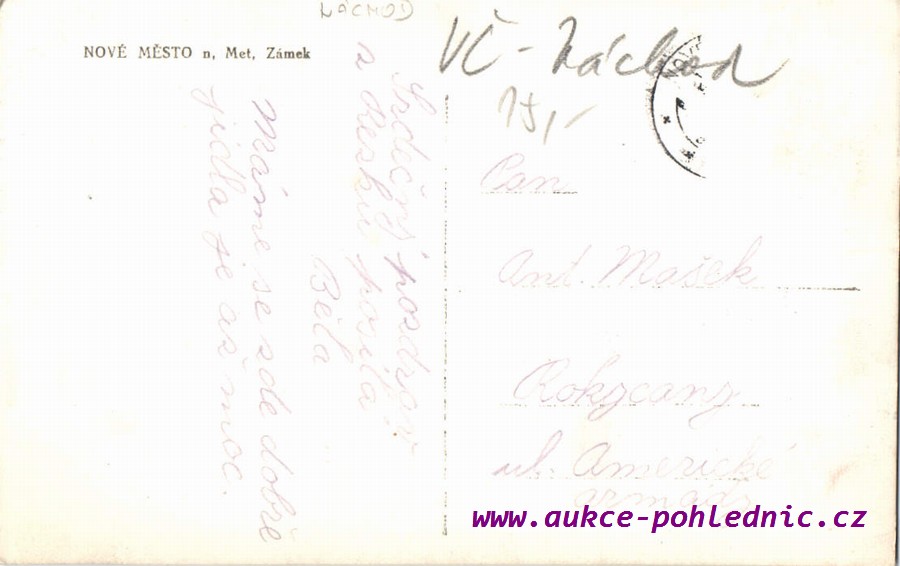 NÁCHOD
VČ - Náchod
NOVÉ MĚSTO n, Met, Zámek
15,-
Srdečný pozdrav
a posílá
Běla
Máme se zde dobře
jídla je až moc.
Pan
Ant. Mašek
Rokycany
ul. Americké
armády
www.aukce-pohlednic.cz